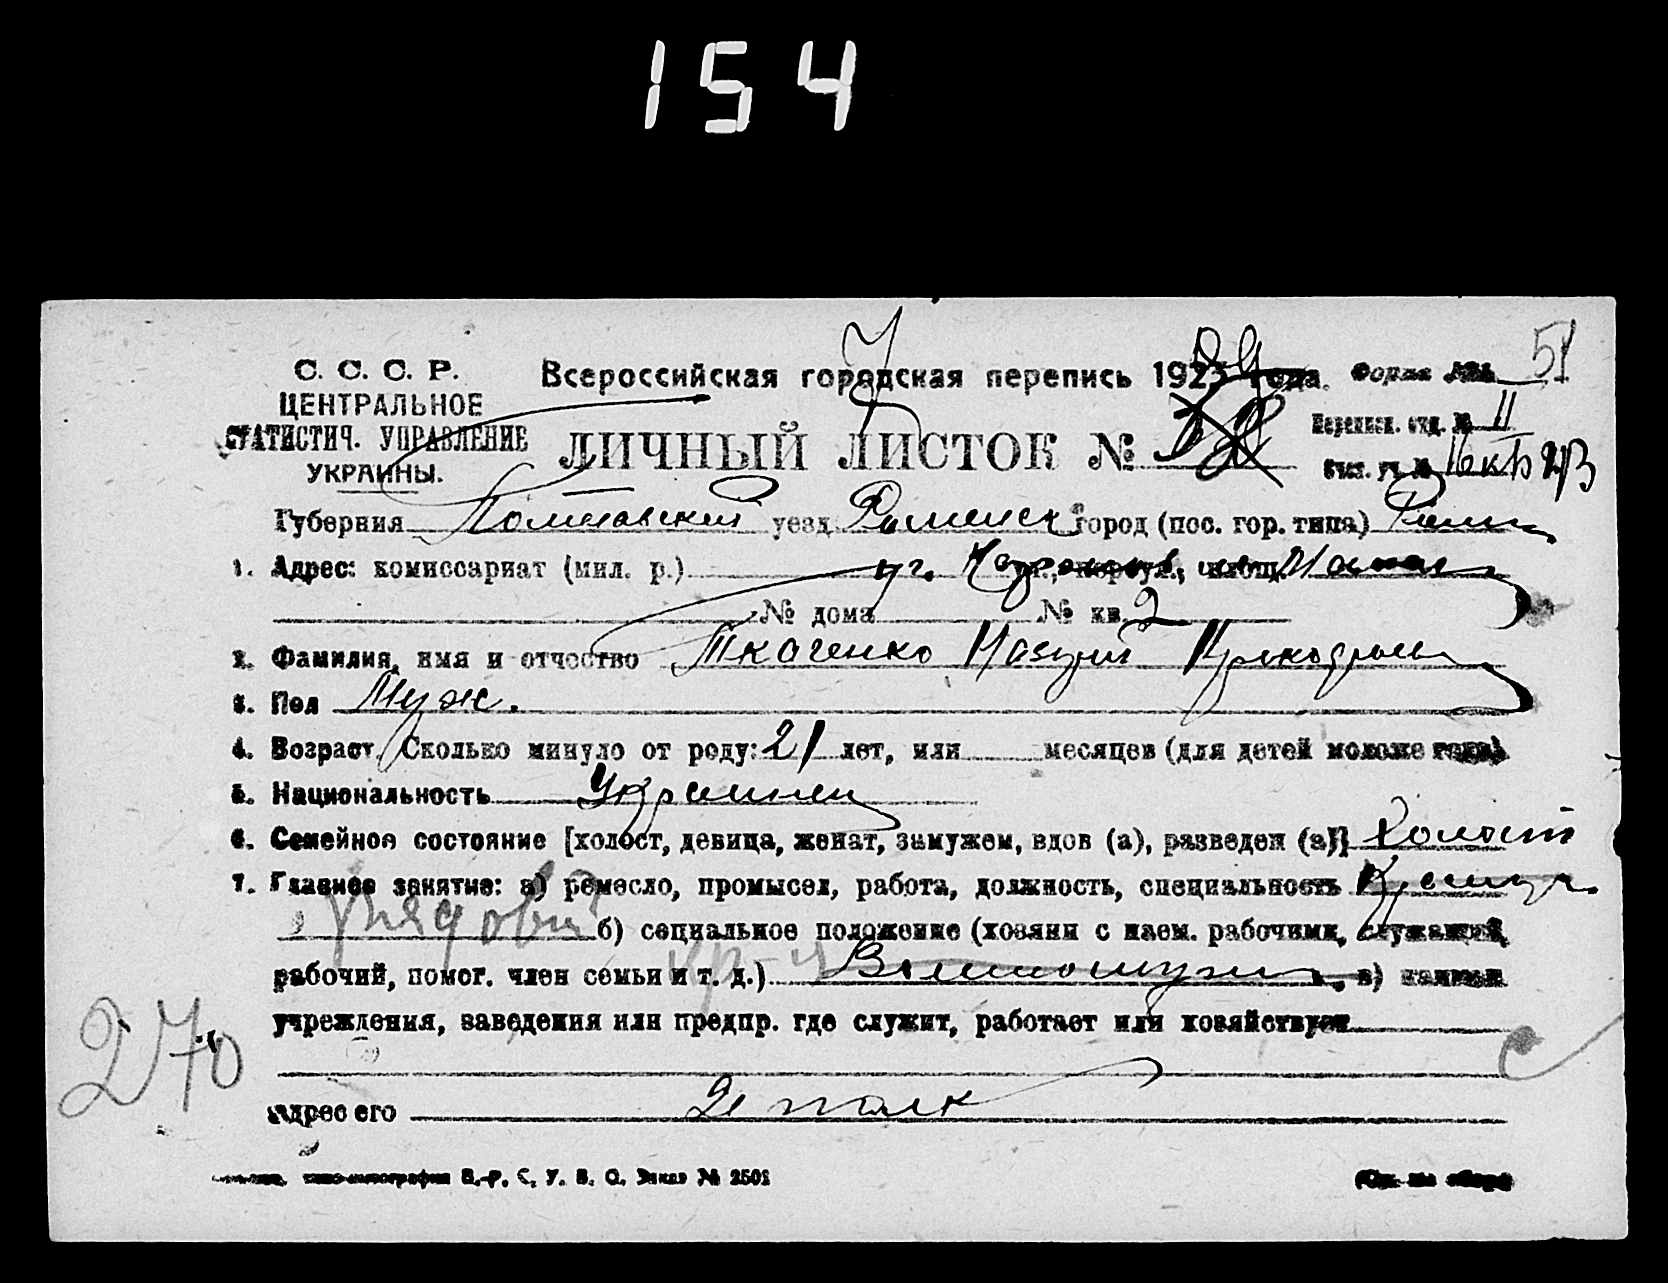 154
С. С. С. Р.
ЦЕНТРАЛЬНОЕ
СТАТИСТИЧ. УПРАВЛЕНИЕ
УКРАИНЫ.
Всероссийская городская перепись 1923 года. Форма № 51
ЛИЧНЫЙ ЛИСТОК №
Переписн. отд. № 11
Счет. уч. № 16
Губерния Полтавский уезд Роменск город (пос. гор. типа) Ромны
1. Адрес: комиссариат (мил. р.) площ.
№ дома № кв. 2
2. Фамилия, имя и отчество Ткаченко Назарий Прокофьев
3. Пол Муж.
4. Возраст. Сколько минуло от роду: 21 лет, или месяцев (для детей моложе года)
5. Национальность Украинец
6. Семейное состояние [холост, девица, женат, замужем, вдов (а), разведен (а)] Холост
7. Главное занятие: а) ремесло, промысел, работа, должность, специальность
рядовой б) социальное положение (хозяин с наем. рабочими, служащий,
рабочий, помог. член семьи и т. д.) в)
учреждения, заведения или предпр. где служит, работает или хозяйствует
270
Адрес его 2й полк
Заказ № 2501